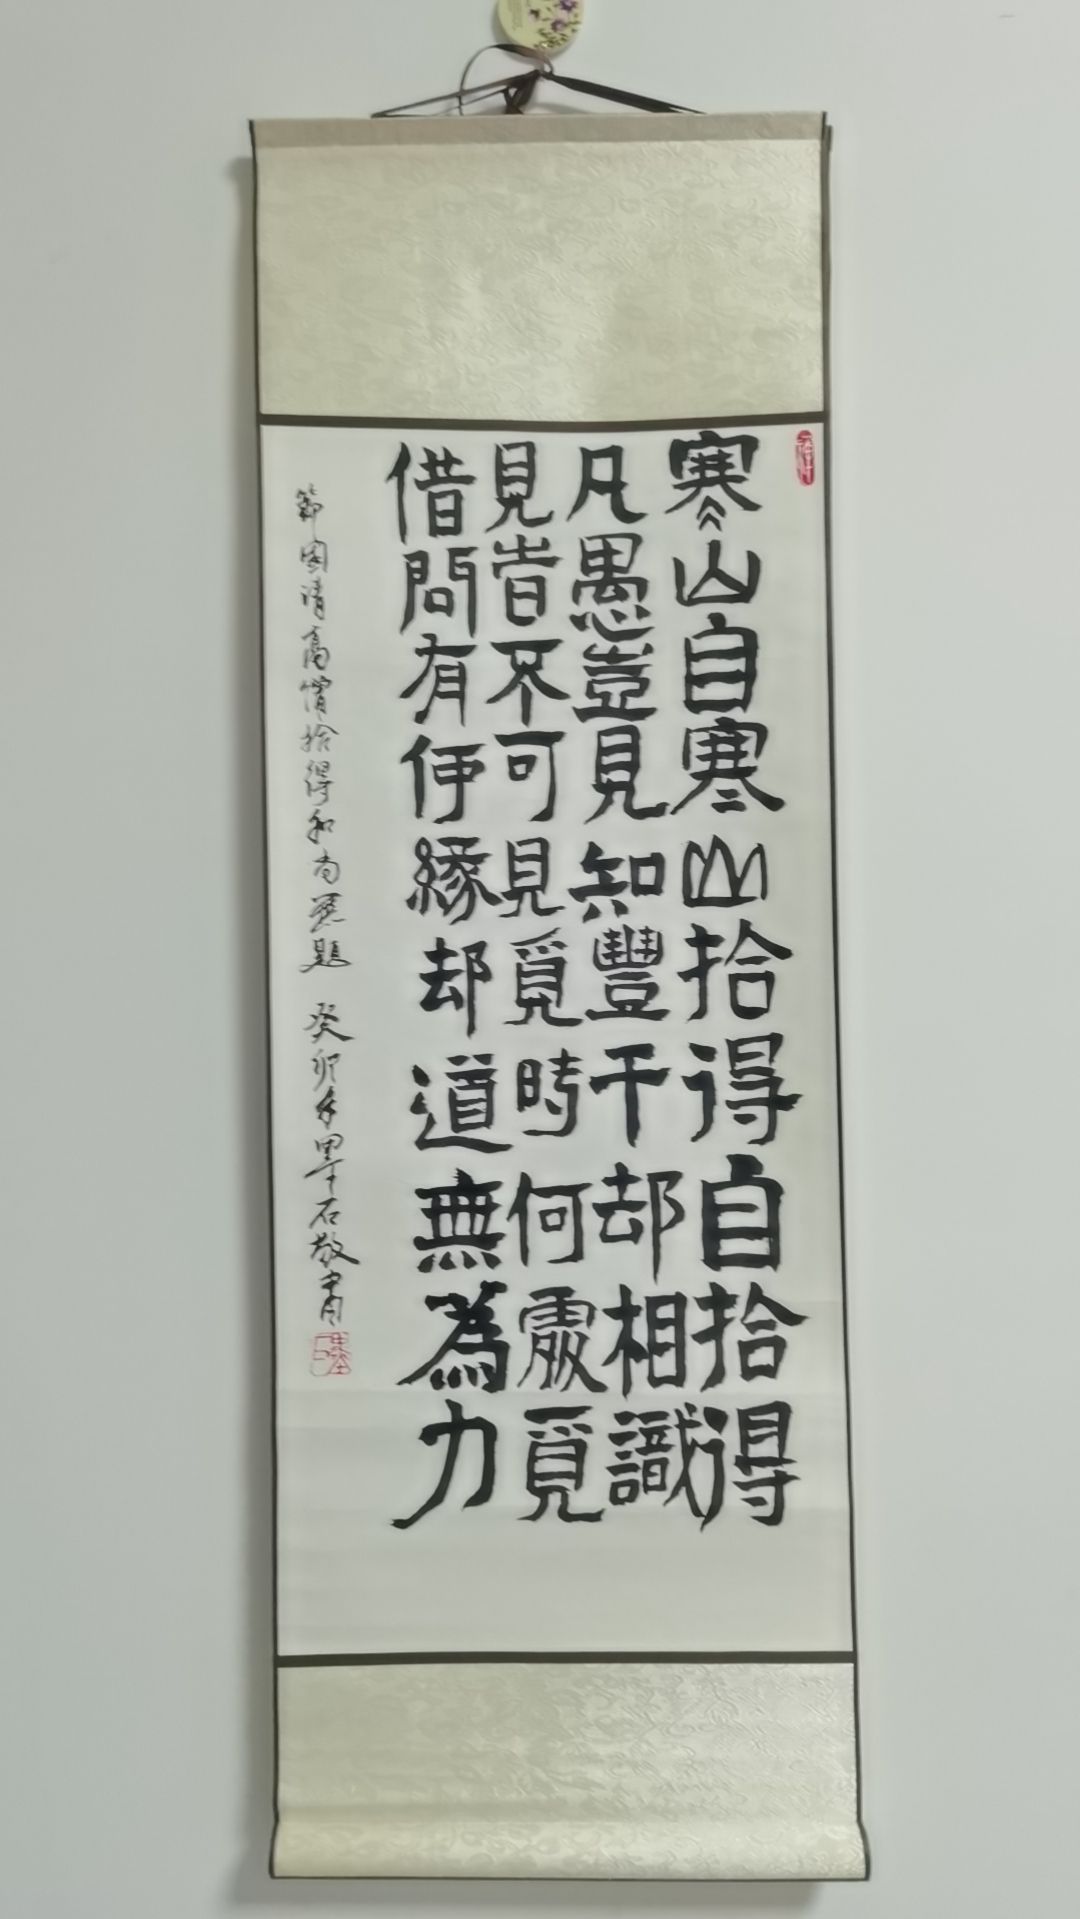 寒山自寒山拾得自拾得
凡愚豈見知豐干却相識
見旹不可見覓時何處覓
借問有伊緣却道無為力
節國清高僧拾得和尚題 癸卯年墨石敬書